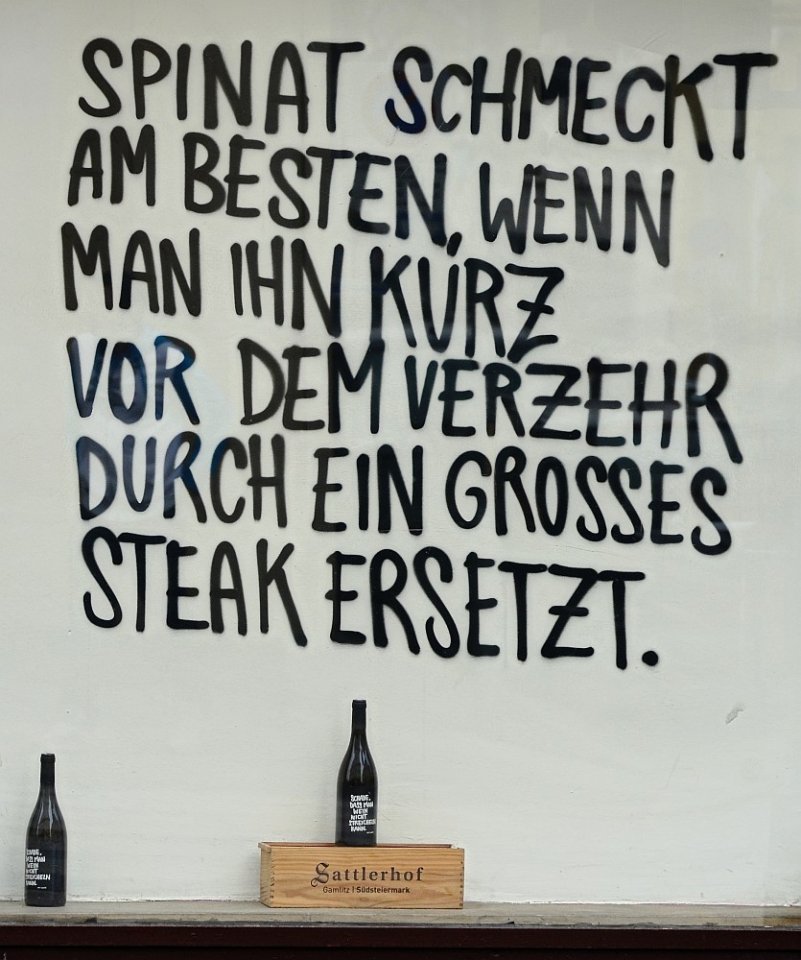 SPINAT SCHMECKT
AM BESTEN, WENN
MAN IHN KURZ
VOR DEM VERZEHR
DURCH EIN GROSSES
STEAK ERSETZT.
SCHADE,
DASS MAN
WEIN
NICHT
STREICHELN
KANN.
SCHADE,
DASS MAN
WEIN
NICHT
STREICHELN
KANN.
Sattlerhof
Gamlitz | Südsteiermark